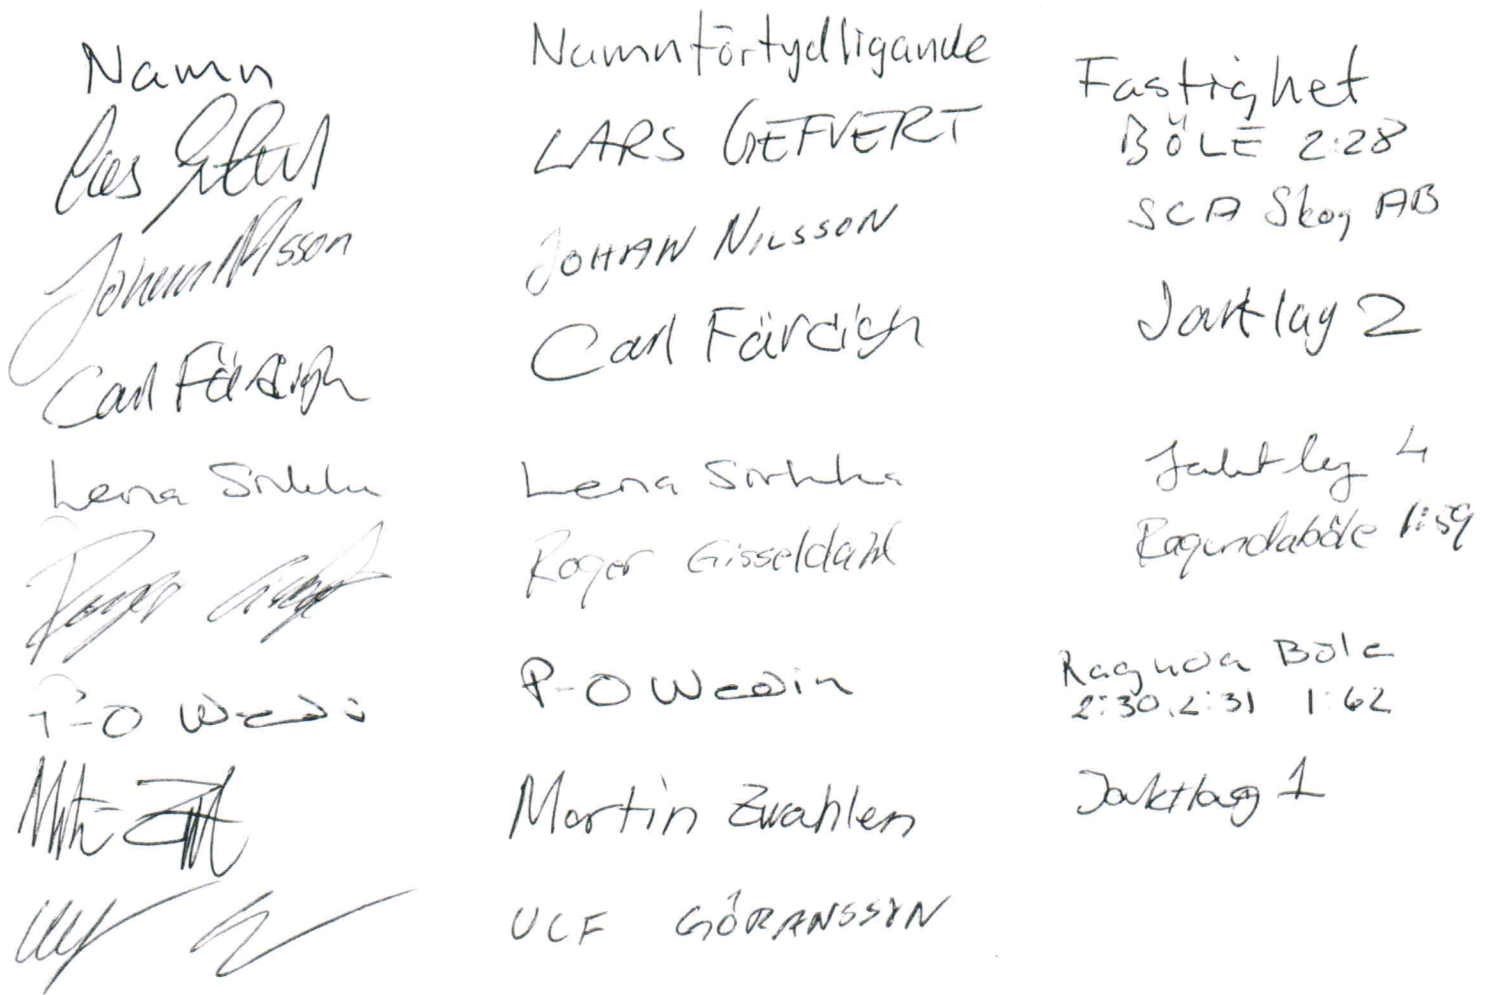 Namn Namnförtydligande Fastighet
Lars Gefvert LARS GEFVERT BÖLE 2:28
Johan Nilsson JOHAN NILSSON SCA Skog AB
Carl Färdigh Carl Färdigh Jaktlag 2
Lena Sirkka Lena Sirkka Jaktlag 4
Roger Roger Gisseldahl Ragundaböle 1:59
P-O Wedin P-O Wedin Ragunda Böle
2:30, 2:31 1:62
Martin Zwahlen Jaktlag 1
Ulf ULF GÖRANSSON